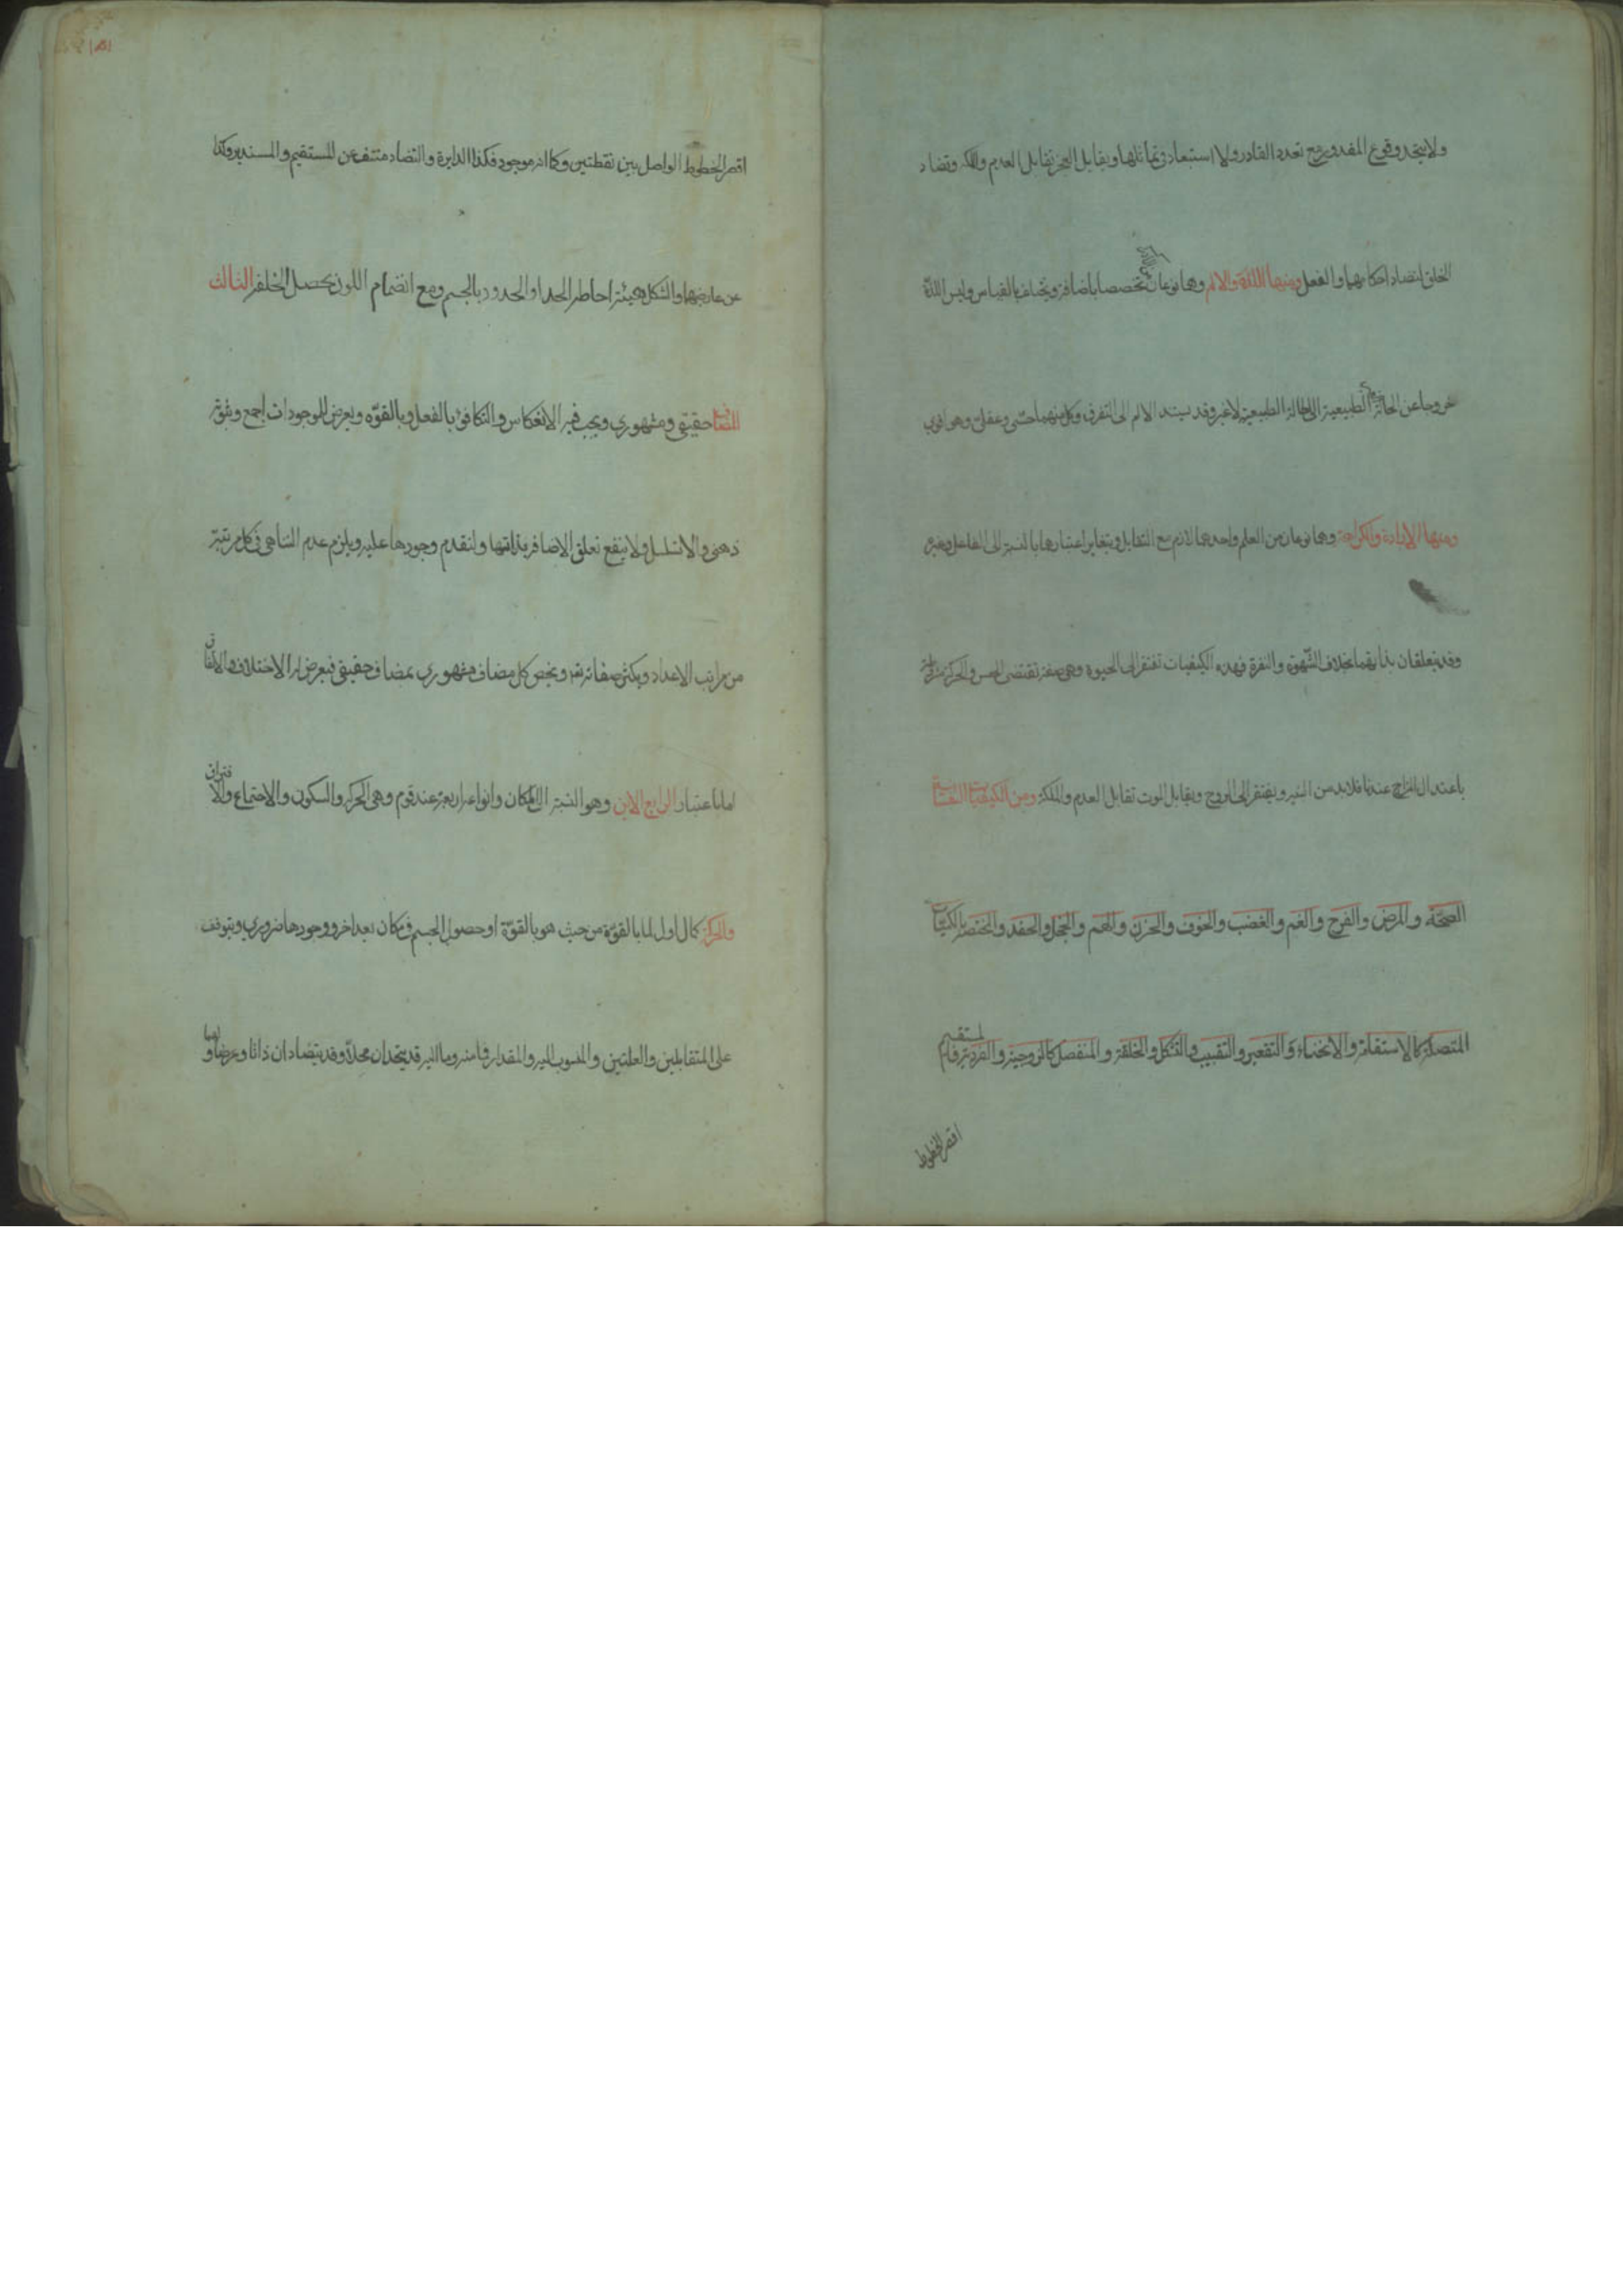 ولا يتحد وقوع المقدور مع تعدد القادر ولا استبعاد في تماثلها ويقابل العجز تقابل العدم والملكة وتضاد
الخلق لتضاد احكامهما والفعل ومنها اللذة والالم وهما نوعان تخصصا باضافة ويختلف بالقياس وليس اللذة
خروجا عن الحالة الطبيعية الى الحالة الطبيعية لا غير وقد يستند الالم الى التفرق وكل منهما حسي وعقلي وهو اقوى
ومنها الارادة والكراهة وهما نوعان من العلم واحدهما لازم مع التقابل ويتغاير اعتبارهما بالنسبة الى الفاعل وغيره
وقد يتعلقان بذاتهما بخلاف الشهوة والنفرة فهذه الكيفيات تفتقر الى الحيوة وهي صفة تقتضي الحس والحركة مشروطة
باعتدال المزاج عندنا فلا بد من البنية ويفتقر الى الروح ويقابل الموت تقابل العدم والملكة ومن الكيفيات النفسانية
الصحة والمرض والفرح والغم والغضب والخوف والحزن والهم والخجل والحقد والمختصة بالكميات
المتصلة كالاستقامة والانحناء والتقعير والتقبيب والشكل والخلقة والمنفصل كالزوجية والفردية فالمستقيم
اقصر الخطوط
اقصر الخطوط الواصل بين نقطتين وكما انه موجود فكذا الدايرة والتضاد منتف عن المستقيم والمستدير وكذا
عن عارضهما والشكل هيئة احاطة الحد او الحدود بالجسم ومع انضمام اللون يحصل الخلقة الثالث
المضاف حقيقي ومشهوري ويجب فيه الانعكاس والتكافؤ بالفعل وبالقوه ويعرض للموجودات اجمع وثبوته
ذهني والا تسلسل ولا ينفع تعلق الاضافة بذاتها ولتقدم وجودها عليه ويلزم عدم التناهي في كل مرتبة
من مراتب الاعداد ويكثر صفاته تع ويخص كل مضاف مشهوري بمضاف حقيقي فيعرض له الاختلاف والاتفاق
اما باعتبار الرابع الاين وهو النسبة الى المكان وانواعه اربعة عند قوم وهي الحركة والسكون والاجتماع والافتراق
والحركة كمال اول لما بالقوة من حيث هو بالقوة او حصول الجسم في مكان بعد اخر ووجودها ضروري ويتوقف
على المتقابلين والعلتين والمنسوب اليه والمقدار فما منه وما اليه قد يتحدان محلا وقد يتضادان ذاتا وعرضا ولهما